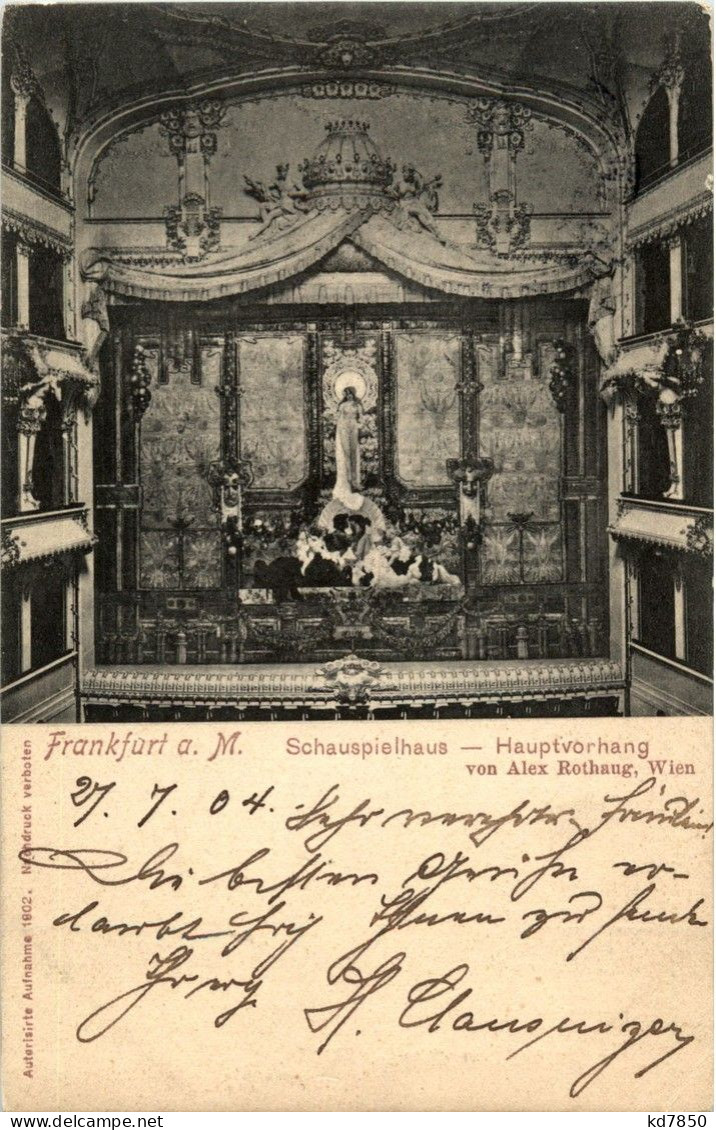 Frankfurt a. M. Schauspielhaus — Hauptvorhang
von Alex Rothaug, Wien
27. 7. 04. Sehr verehrtes Fräulein
Die besten Grüße er-
laubt sich Ihnen zu senden
Ihr erg.
H.
Autorisirte Aufnahme 1902. Nachdruck verboten
kd7850